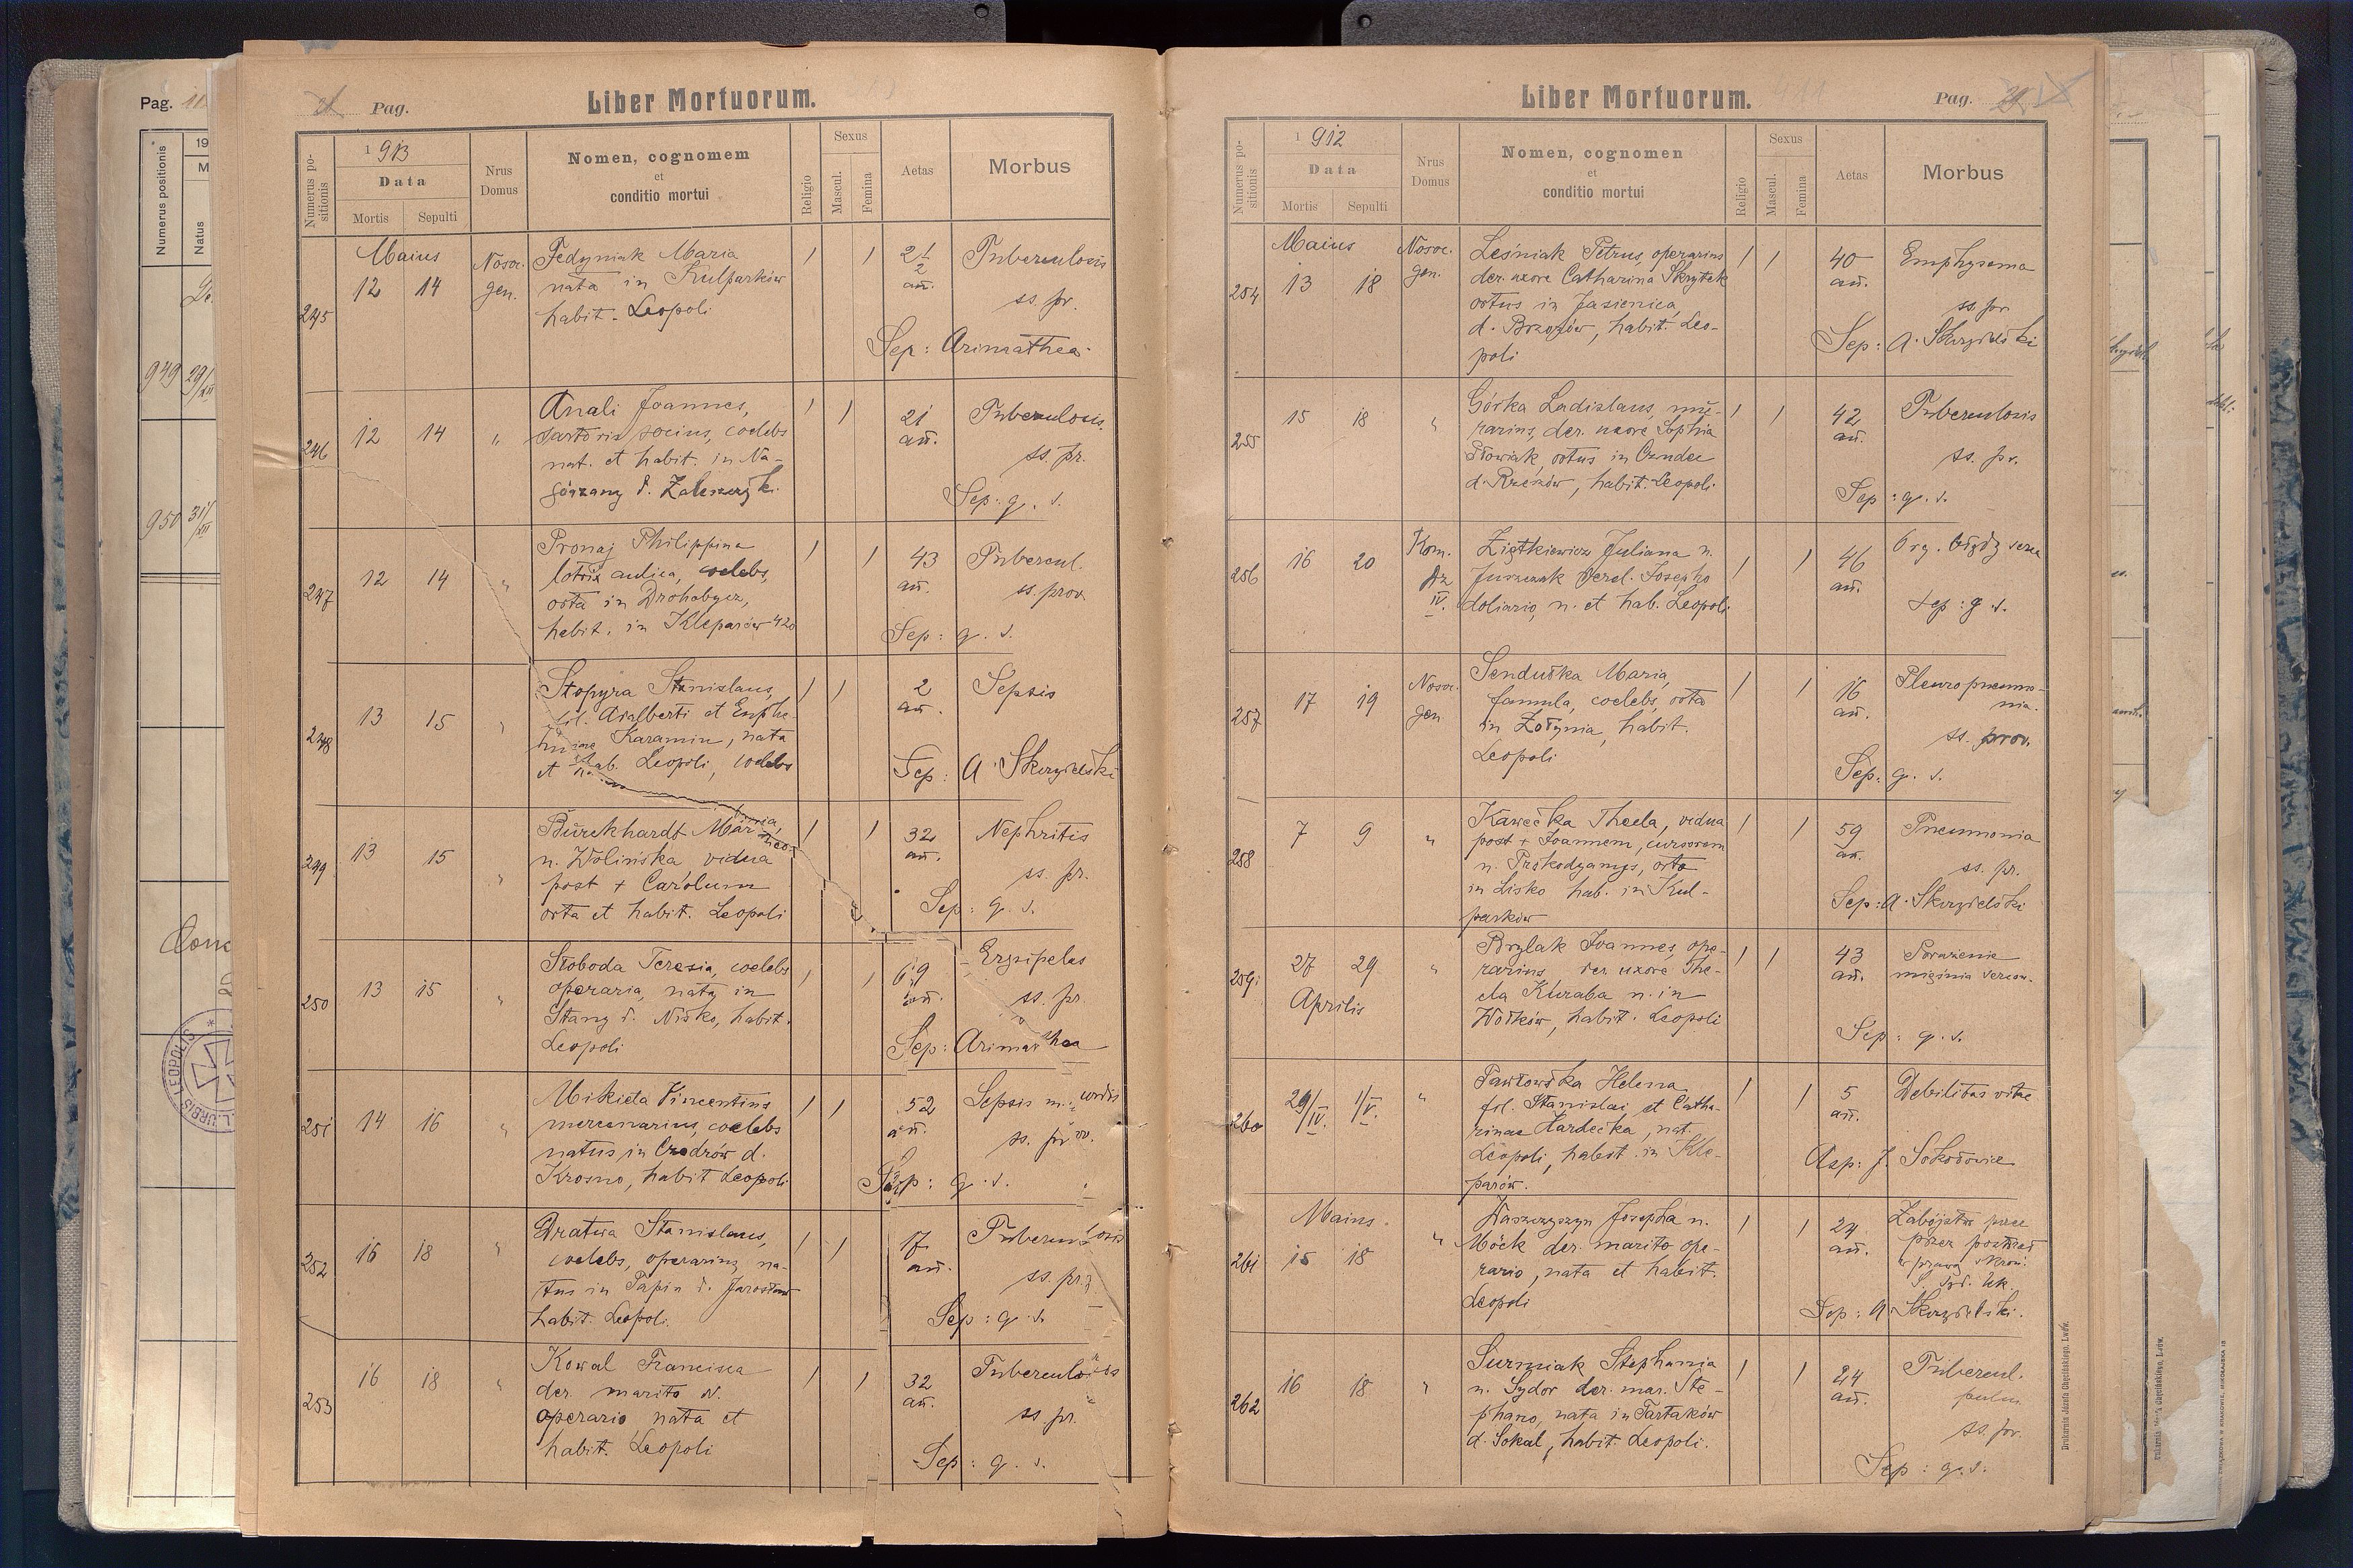 Pag. 11
Numerus positionis
19
M
Natus
949 29/XII
950 31/XII
LEOPOLIS
Pag.
Liber Mortuorum.
Numerus positionis
1913
Data
Mortis
Sepulti
Nrus Domus
Nomen, cognomem
et
conditio mortui
Religio
Sexus
Mascul.
Femina
Aetas
Morbus
245
Maius
12 14
Nosoc. gen.
Fedyniak Maria
nata in Kulparków
habit. Leopoli
1 1
2 1/2 an.
Tuberculosis
ss pr.
Sep: Arimathea
246
12 14 "
Anali Joannes,
sartoris socius, coelebs
nat. et habit. in Na-
górzany d. Zaleszczyki
1 1
21 an.
Tuberculosis
ss. pr.
Sep. q. s.
247
12 14 "
Pronaj Philippina
lotrix aulica, coelebs,
orta in Drohobycz,
habit. in Kleparów 420
1 1
43 an.
Tubercul.
ss. prov
Sep: q. s.
248
13 15 "
Stopyra Stanislaus,
fil. Adalberti et Euphe-
miae Karamin, nata
et hab. Leopoli, coelebs
1 1
2 an.
Sepsis
Sep: A. Skrzydelski
249
13 15 "
Burckhardt Maria,
n. Wolińska vidua
post + Carolum
orta et habit. Leopoli
1 1
32 an.
Nephritis
ss. pr.
Sep: q. s.
250
13 15 "
Słoboda Teresia, coelebs
operaria, nata in
Stany d. Nisko, habit.
Leopoli
1 1
69 an.
Erysipelas
ss. pr.
Sep: Arimathea
251
14 16 "
Mikieta Vincentius
mercenarius, coelebs
natus in
Krosno, habit Leopoli
1 1
52 an.
Sepsis m. cordis
ss. prov.
Sep: q. s.
252
16 18 "
Dratwa Stanislaus,
coelebs, operarius, na-
tus in Tapin d. Jarosław
habit. Leopoli.
1 1
17 an.
Tuberculosis
ss. pr.
Sep: q. s.
253
16 18 "
Kowal Francisca
der. marito N.
operario nata et
habit. Leopoli
1 1
32 an.
Tuberculosis
ss. pr.
Sep: q. s.
Liber Mortuorum.
Pag. 21
Numerus positionis
1912
Data
Mortis
Sepulti
Nrus Domus
Nomen, cognomen
et
conditio mortui
Religio
Sexus
Mascul.
Femina
Aetas
Morbus
254
Maius
13 18
Nosoc. gen.
Leśniak Petrus, operarius
der. uxore Catharina Skrytek
ortus in Jasienica
d. Brzozów, habit. Leo-
poli
1 1
40 an.
Emphysema
ss pr
Sep: A. Skrzydelski
255
15 18 "
Górka Ladislaus, mu-
rarius, der. uxore Sophia
Słowiak, ortus in
d. Rzeszów, habit. Leopoli
1 1
42 an.
Tuberculosis
ss. pr.
Sep: q. s.
256
16 20
Kom. Dz IV.
Ziętkiewicz Juliana n.
Juszczak derel. Josepho
doliario, n. et hab. Leopoli
1 1
46 an.
Org. błędy serca
Sep: q s.
257
17 19
Nosoc. gen
Senduśka Maria,
famula, coelebs, orta
in Żołynia, habit.
Leopoli
1 1
16 an.
Pleuropneumo-
nia.
ss. prov.
Sep: q. s.
258
7 9 "
Kawecka Thecla, vidua
post + Joannem, cursorem
n. orta
in Lisko hab. in Kul-
parków
1 1
59 an.
Pneumonia
ss. pr.
Sep: A. Skrzydelski
259
27 29 "
Aprilis
Brylak Joannes, ope-
rarius, der. uxore The-
cla Kuraba n. in
Wołków, habit. Leopoli
1 1
43 an.
Porażenie
mięśnia sercow.
Sep: q. s.
260
29/IV. 1/V. "
Pawłowska Helena
fil. Stanislai et Catha-
rinae Hardecka, nat.
Leopoli, habit. in Kle-
parów.
1 1
5 an.
Debilitas vitae
Asp: J. Sokołowicz
261
Maius
15 18 "
Waszczyszyn Josepha n.
Möck der. marito ope-
rario, nata et habit.
Leopoli
1 1
24 an.
Zabójstw
przez postrzał
w prawą skroń.
Sep: A. Skrzydelski.
262
16 18 "
Surmiak Stephania
n. Sydor der. mar. Ste-
phano, nata in Tartaków
d. Sokal, habit. Leopoli.
1 1
24 an.
Tubercul.
pulm
ss. pr.
Sep: q. s.
Drukarnia Józefa Chęcińskiego, Lwów.